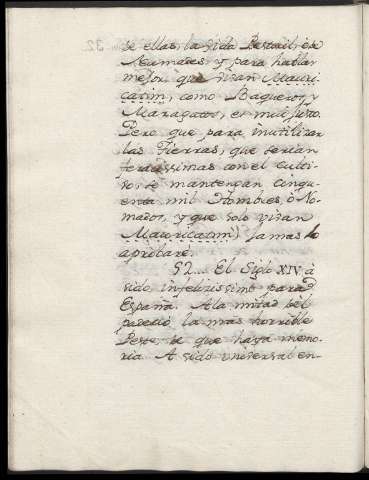 de ellas, la vida Pastoril, ó de
Numadas, y para hablar
mejor que vivan Mauri-
catim, como Baqueros, y
Maragatos, es mui justo.
Pero que para inutilizar
las Tierras, que serian
feracissimas con el culti-
vo, se mantengan cinqu-
enta mil Hombres, ó No-
mados, y que solo vivan
Mauricatim) Jamas lo
aprobaré.
52... El Siglo XIV á
sido infelizissimo para
España. A la mitad del
padeció la mas horrible
Peste, de que haya memo-
ria. A sido universal en-